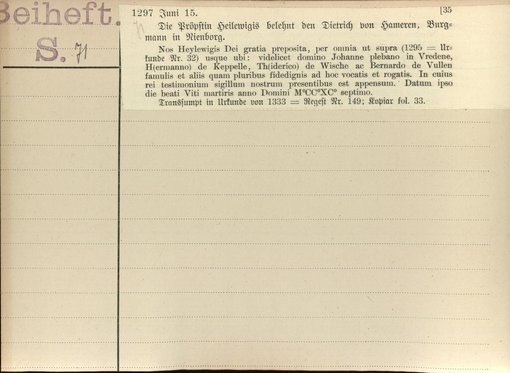 Beiheft.
S. 71
1297 Juni 15. [35
Die Pröpstin Heilewigis belehnt den Dietrich von Hameren, Burg-
mann in Nienborg.
Nos Heylewigis Dei gratia preposita, per omnia ut supra (1295 = Ur-
kunde Nr. 32) usque ubi: videlicet domino Johanne plebano in Vredene,
H(ermanno) de Keppelle, Th(iderico) de Wische ac Bernardo de Vullen
famulis et aliis quam pluribus fidedignis ad hoc vocatis et rogatis. In cuius
rei testimonium sigillum nostrum presentibus est appensum. Datum ipso
die beati Viti martiris anno Domini M°CC°XC° septimo.
Transsumpt in Urkunde von 1333 = Regest Nr. 149; Kopiar fol. 33.